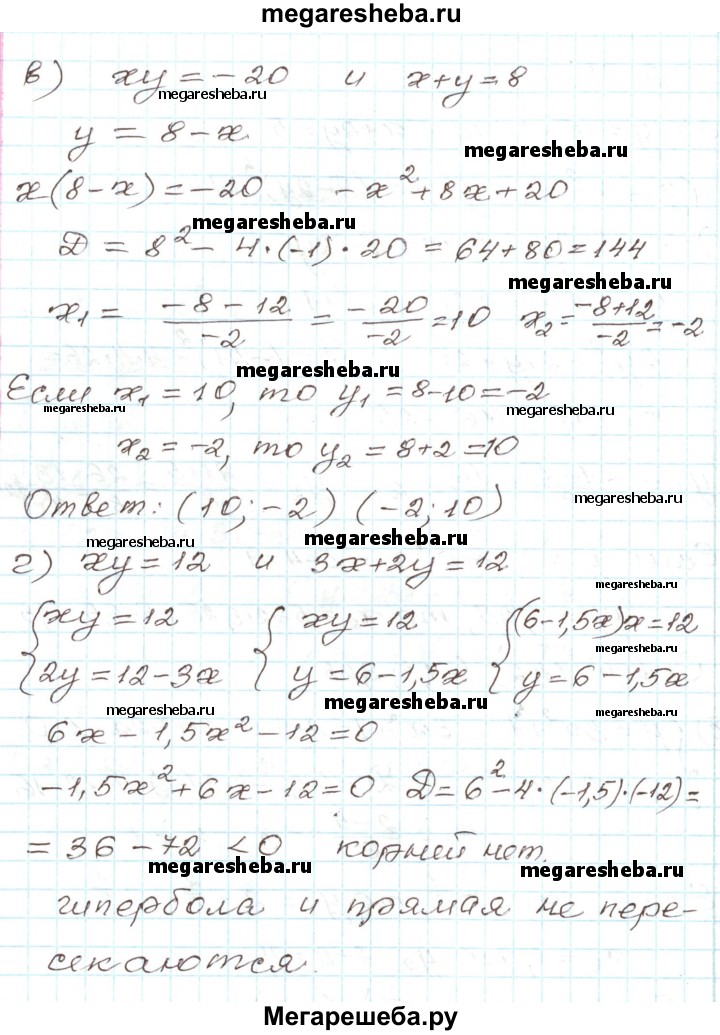 megaresheba.ru
в) xy = -20 и x+y = 8
megaresheba.ru
y = 8 - x
megaresheba.ru
x(8-x) = -20 -x²+8x+20
megaresheba.ru
D = 8² - 4·(-1)·20 = 64+80=144
megaresheba.ru
x₁ = (-8-12)/(-2) = (-20)/(-2) = 10 x₂ = (-8+12)/(-2) = -2
megaresheba.ru
Если x₁ = 10, то y₁ = 8-10=-2
megaresheba.ru megaresheba.ru
x₂ = -2, то y₂ = 8+2=10
Ответ: (10; -2) (-2; 10)
megaresheba.ru
megaresheba.ru megaresheba.ru
г) xy = 12 и 3x+2y = 12
megaresheba.ru
{xy = 12 {xy = 12 {(6-1,5x)x=12
megaresheba.ru
{2y = 12-3x {y = 6-1,5x {y = 6-1,5x
megaresheba.ru megaresheba.ru megaresheba.ru
6x - 1,5x² - 12 = 0
-1,5x²+6x-12=0 D=6²-4·(-1,5)·(-12)=
= 36 - 72 < 0 корней нет.
megaresheba.ru megaresheba.ru
гипербола и прямая не пере-
секаются.
Мегарешеба.ру